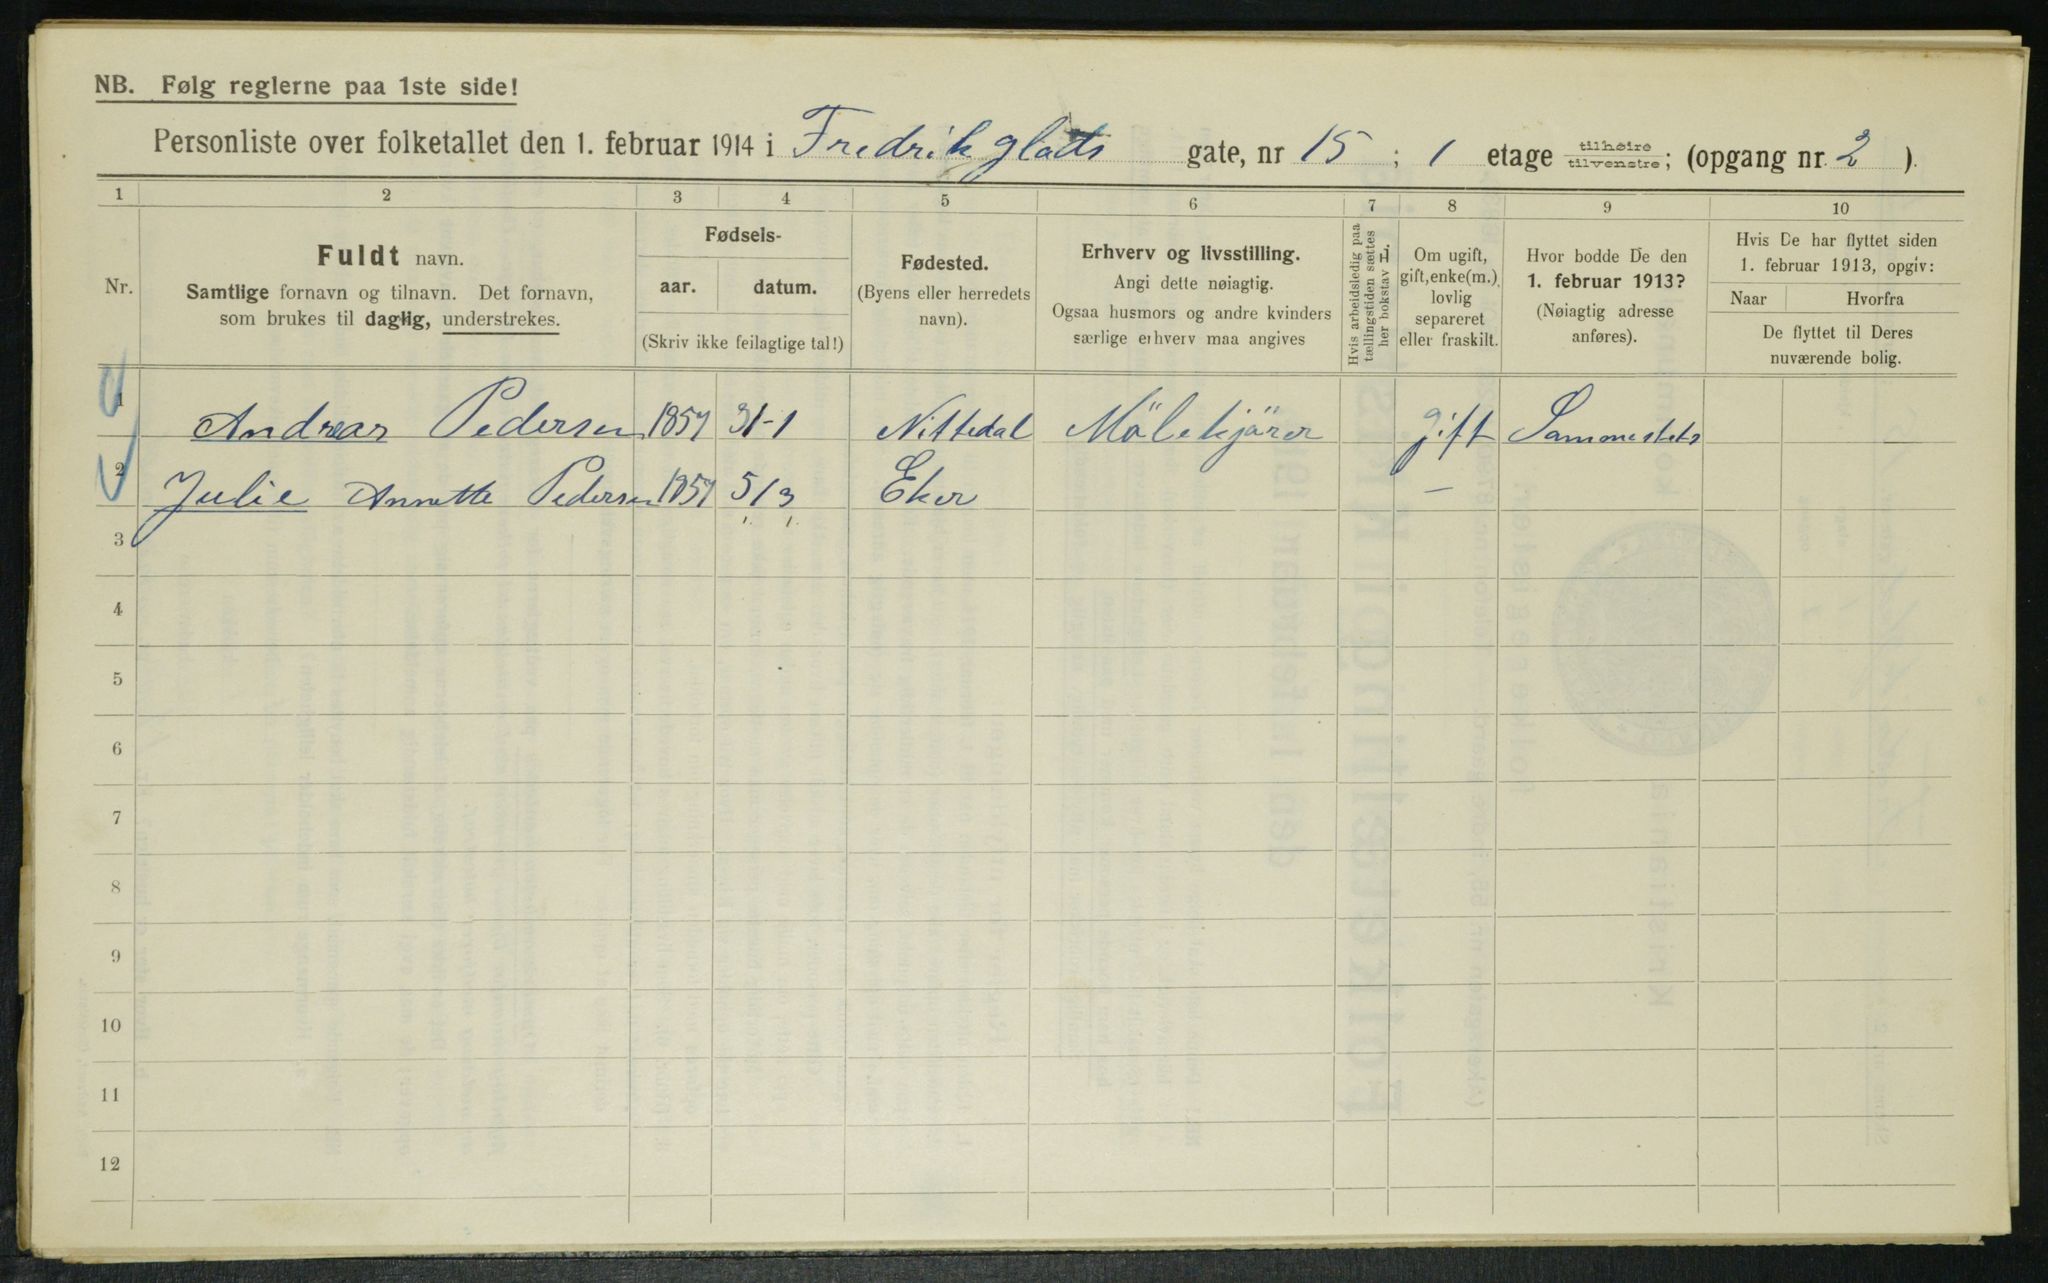 NB. Følg reglerne paa 1ste side!
Personliste over folketallet den 1. februar 1914 i Fredrik glads gate, nr 15 ; 1 etage tilhøire tilvenstre; (opgang nr. 2 ).
1 2 3 4 5 6 7 8 9 10
Nr.
Fuldt navn.
Samtlige fornavn og tilnavn. Det fornavn,
som brukes til daglig, understrekes.
Fødsels-
aar. datum.
(Skriv ikke feilagtige tal!)
Fødested.
(Byens eller herredets
navn).
Erhverv og livsstilling.
Angi dette nøiagtig.
Ogsaa husmors og andre kvinders
særlige erhverv maa angives
Hvis arbeidsledig paa
tællingstiden sættes
her bokstav L.
Om ugift,
gift, enke(m.),
lovlig
separeret
eller fraskilt.
Hvor bodde De den
1. februar 1913?
(Nøiagtig adresse
anføres).
Hvis De har flyttet siden
1. februar 1913, opgiv:
Naar Hvorfra
De flyttet til Deres
nuværende bolig.
1 Andreas Pedersen 1857 31-1 Nittedal Mölekjörer gift Sammesteds
2 Julie Annette Pedersen 1857 5/3 Eker —
3
4
5
6
7
8
9
10
11
12